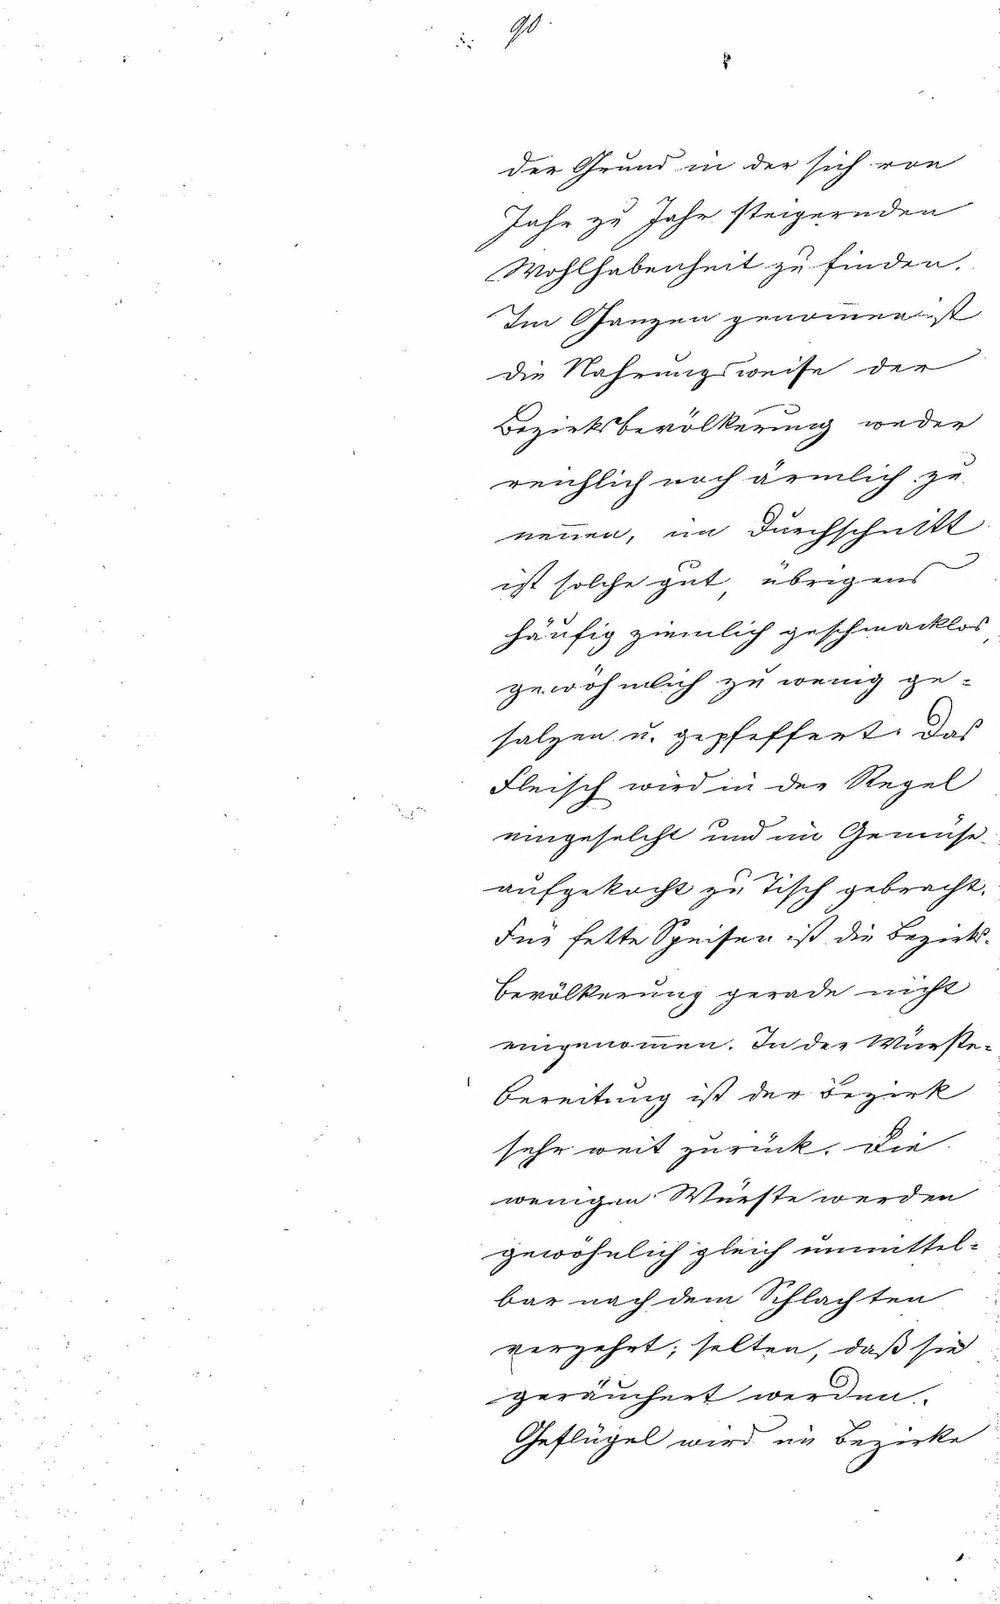 90.
der Grund in der sich von
Jahr zu Jahr steigernden
Wohlhabenheit zu finden.
Im Ganzen genom̅en ist
die Nahrungsweise der
Bezirksbevölkerung weder
reichlich noch ärmlich zu
nen̅en, im Durchschnitt
ist solche gut, übrigens
häufig ziemlich geschmacklos,
gewöhnlich zu wenig ge=
salzen u. gepfeffert. Das
Fleisch wird in der Regel
eingeselcht und im Gemüse
aufgekocht zu Tisch gebracht.
Für fette Speisen ist die Bezirks-
bevölkerung gerade nicht
eingenom̅en. In der Würste=
bereitung ist der Bezirk
sehr weit zurück. Die
wenigen Würste werden
gewöhnlich gleich unmittel=
bar nach dem Schlachten
verzehrt; selten, daß sie
geräuchert werden.
Geflügel wird im Bezirke